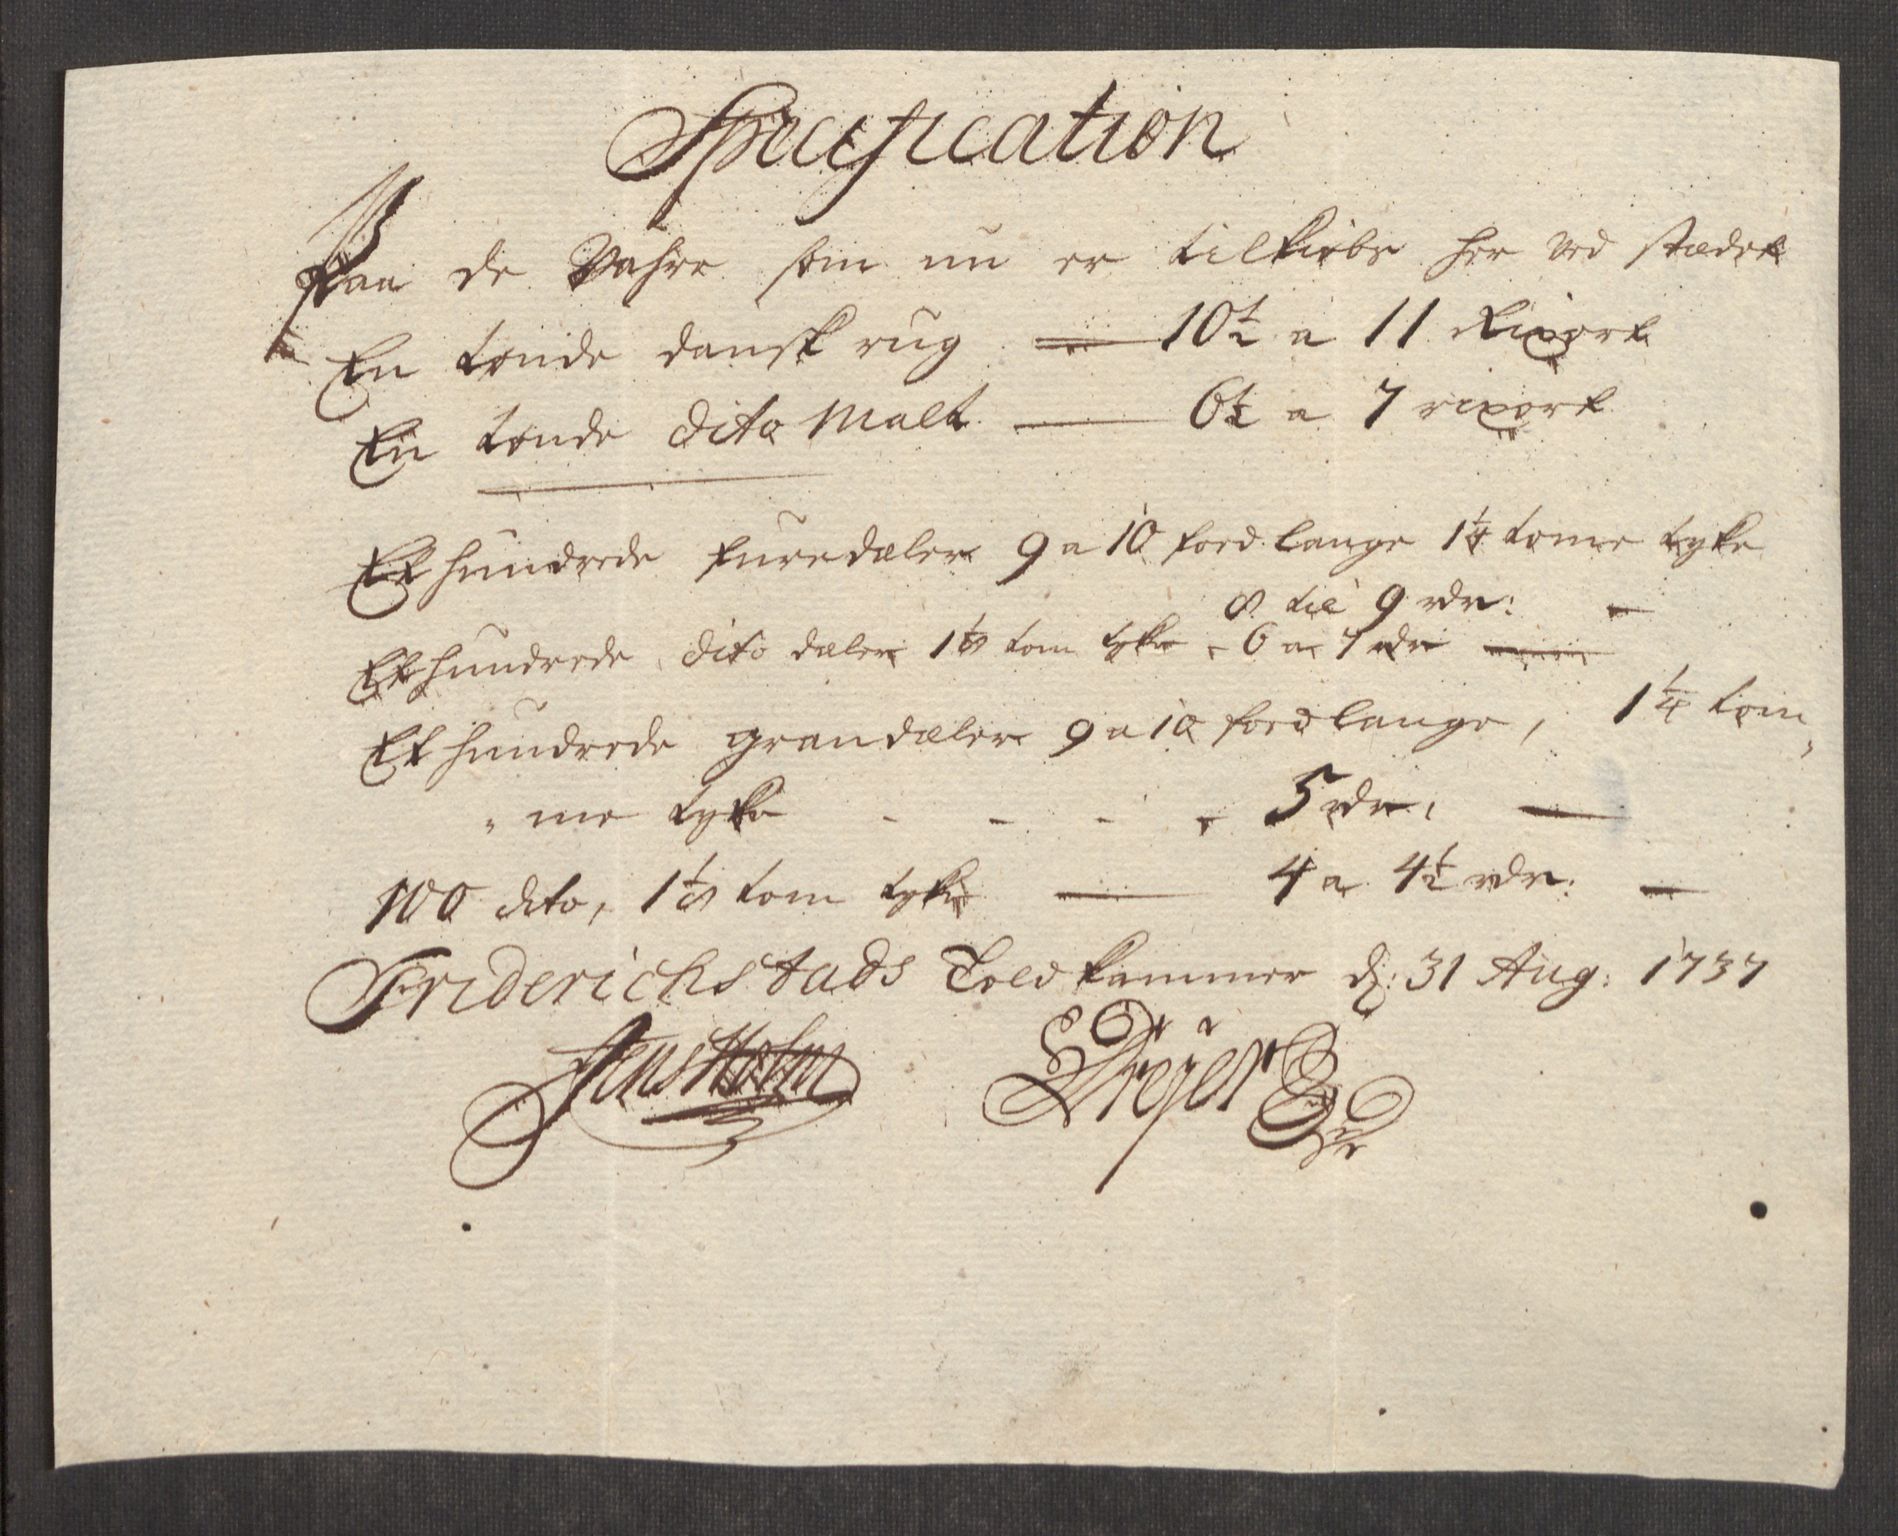 Specification
Paa de Vahre som nu er tilkiøbs her ved stædet
En tønde dansk rug 10½ a 11 Rixort
En tønde dito Malt 6½ a 7 rixort
Et hundrede furedæler 9 a 10 foed lange 1¼ tome tyke
8 til 9 rdr:
Et hundrede dito dæler 1⅛ tom tyke 6 a 7 rdr
Et hundrede grandæler 9 a 10 foed lange, 1¼ tom
me tyke - - - - 5 rdr,
100 dito, 1⅛ tom tyke 4 a 4½ rdr:
Friderichstads Toldkammer d: 31 Aug: 1737
Jens Holm Dreÿer